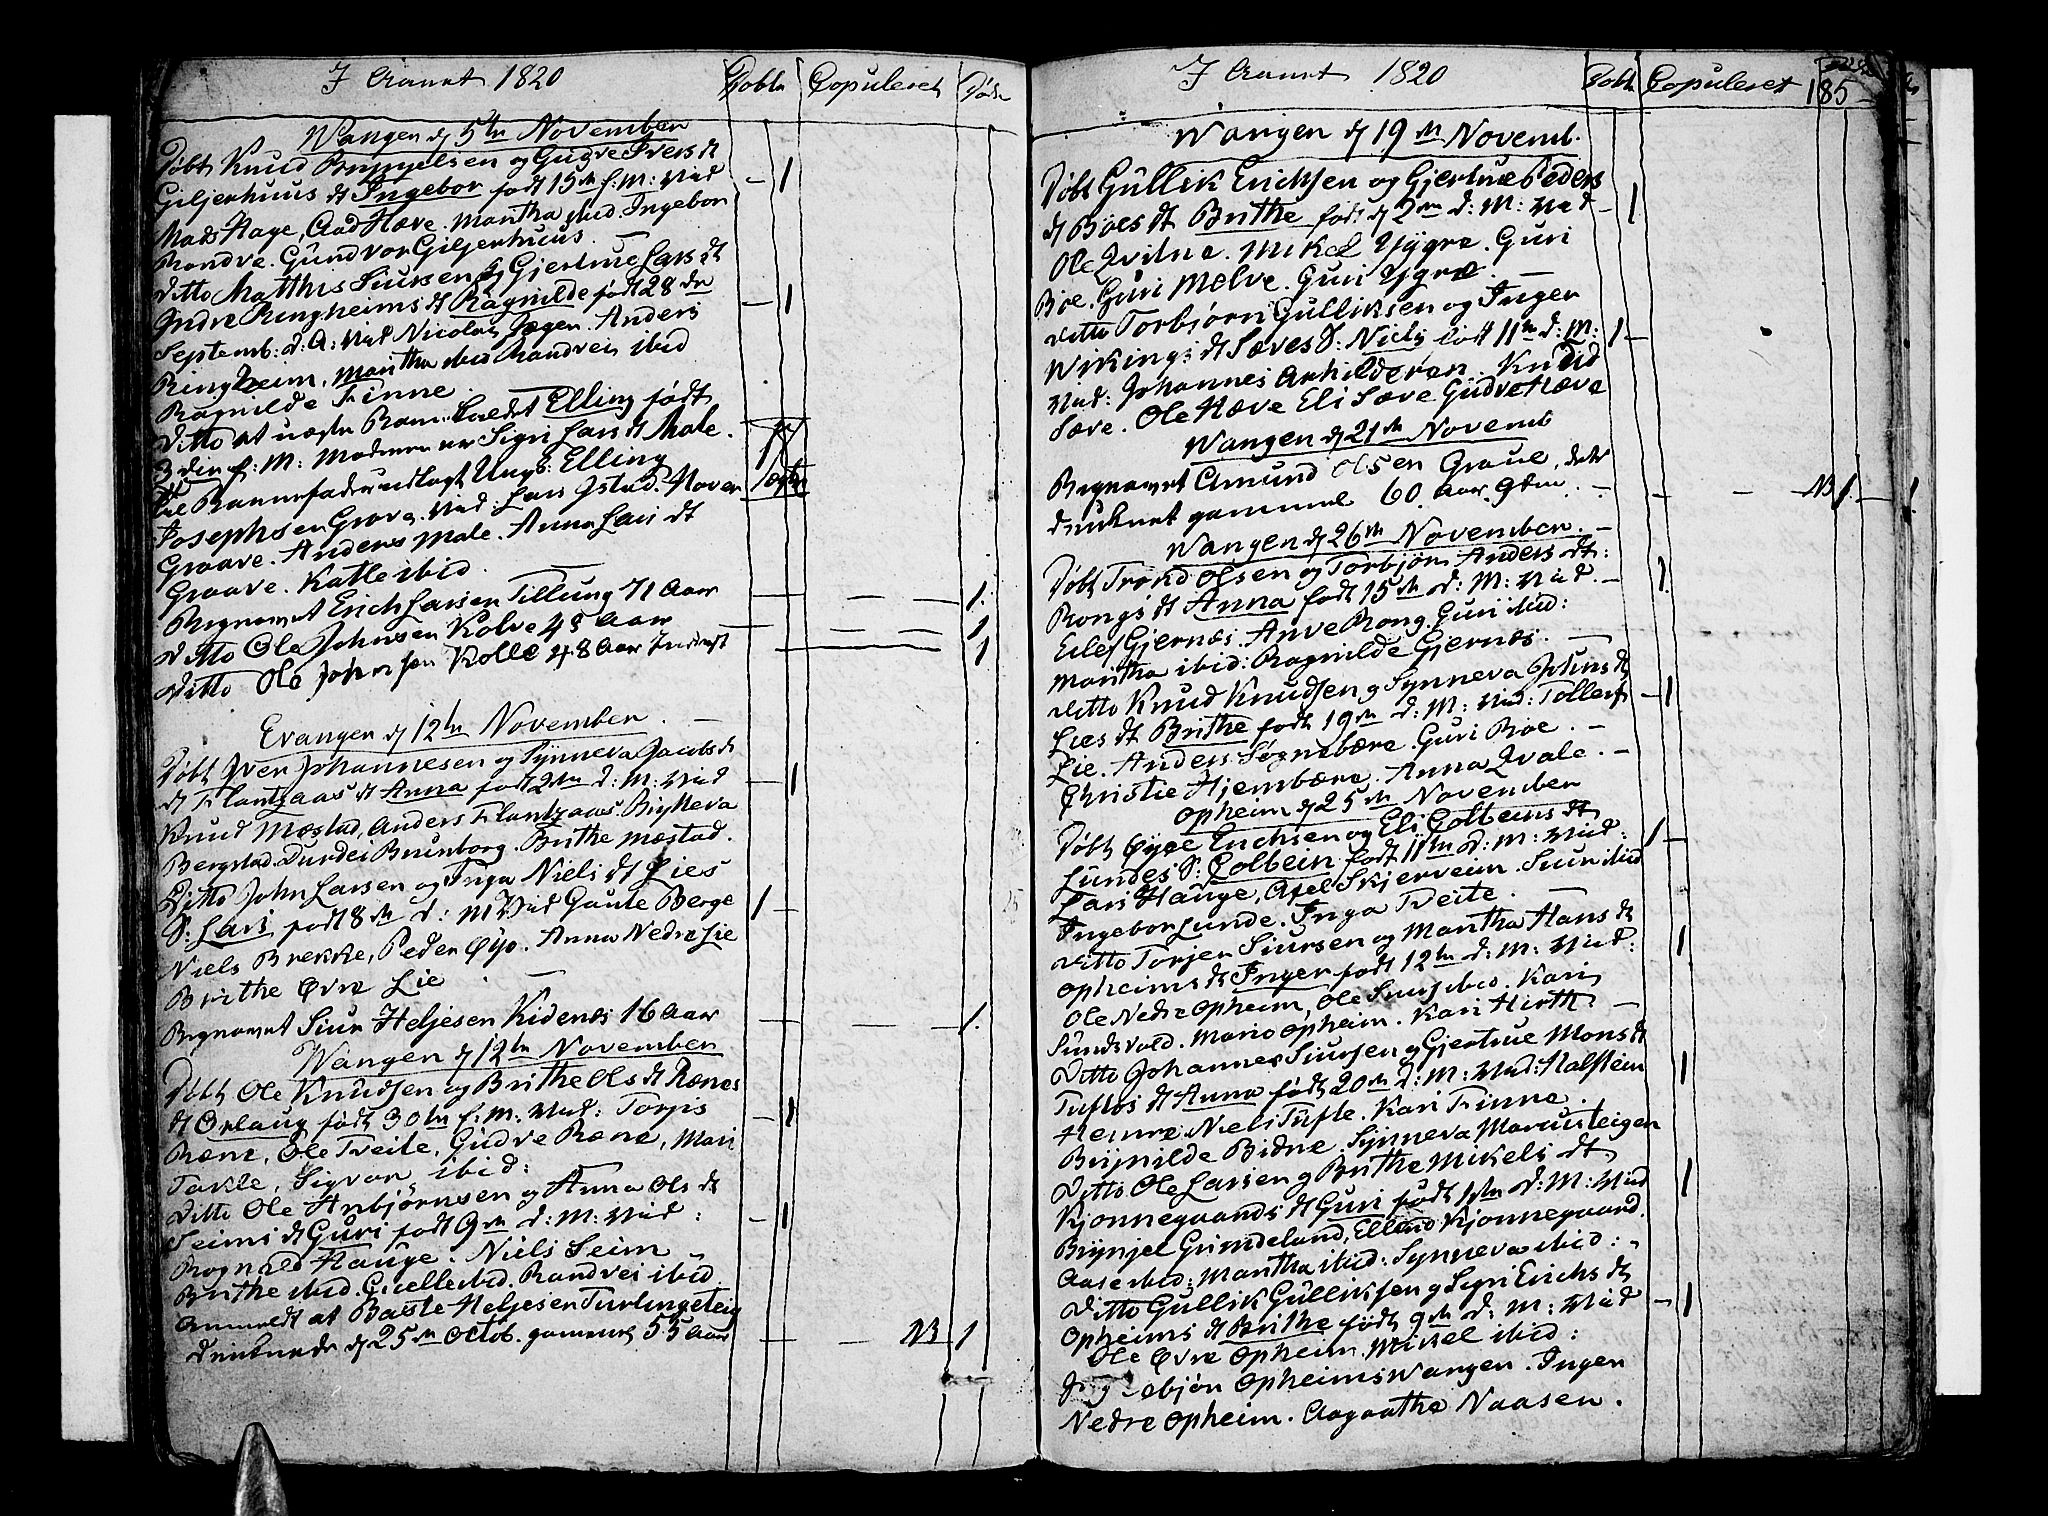 I Aanet 1820 Døbte Copuleret Døde
Wangen d 5te November
Døbt Knud Brynjelsen og Gudve Ivers dt
Giljerhuus dt Ingebor født 15de f: M: Vid
Mads Hage, Aad Hæve. Martha ibid Ingebor
Rondve. Gundvor Giljerhuus.
Ditto Matthis Siursen og Gjertrue Lars dt
Indre Ringheims dt Ragnilde født 28de
Septemb: d: A: Vid Nicolai Jægen. Anders
Ringheim, Martha ibid Randvei ibid
Ragnilde Finne.
Ditto et uægte Barn kaldet Elling født
3die f: M: Moderen er Sigri Lars dt Male.
til Barnefader udlagt Ungk: Elling
Josephsen Grove. Vid: Lars Istad. Iver
Graave. Anders Male. Anna Lars dt
Graave. Katle ibid.
Begravet Erich Larsen Tillung 71 Aar 1.
Ditto Ole Johnsen Kolve 48 Aar 1
Ditto Ole Johnsen Kolle 48 Aar 1
Evangen d 12te November.
Døbt Iver Johannesen og Synneva Jacobs dt
dt Flantzaas dt Anna født 2den d: M: Vid
Knud Mæstad, Anders Flantzaas. Brytteva
Bergstad. Durdei Brunborg. Brithe Mæstad.
Ditto John Larsen og Inga Niels dt Lies
S: Lars født 8de d: M Vid Gaute Berge
Niels Brekke, Peder Øyo. Anna Nedre Lie
Brithe Øvre Lie
Begravet Siur Heljesen Kidenæs 16 Aar 1.
Wangen d 12te November
Døbt Ole Knudsen og Brithe Ols dt Rænes
dt Orlaug født 30te f: M. Vid: Torjis
Ræne, Ole Treite, Gudve Ræne, Mari
Takle, Sigvor ibid:
Ditto Ole Anbjørnsen og Anna Ols dt
Seims dt Guri født 9de d: M: Vid:
Rognald Hauge. Niels Seim
Brithe ibid. Giælle ibid. Randvei ibid
Anmeldt at Baste Heljesen Turlingsteig
druknede d 25de Octob. gammel 55 Aar NB 1
I Aanet 1820 Døbte Copuleret 185
Wangen d 19de Novemb.
Døbt Gullik Erichsen og Gjertrue Peders
dt Bøes dt Brithe født d 2den d: M: Vid
Ole Qvitne. Mikel Ygre. Guri
Boe. Guri Mølve. Guri Ygre.
Ditto Torbjørn Gulliksen og Inger
Wikings dt Sæves S: Niels født 11te d: M:
Vid: Johannes Anhilderen. Knud
Sæve. Ole Hæve Eli Sæve Gudve Hæve
Wangen d 21de Novemb
Begravet Amund Olsen Graue,
druknet gammel 60 Aar. NB 1
Wangen d 26de November.
Døbt Trond Olsen og Torbjør Anders dt:
Rongs dt Anna født 15de d: M: Vid.
Eilef Gjernæs. Anve Rong. Guri ibid:
Martha ibid: Ragnilde Gjernæs.
Ditto Knud Knudsen og Synneva Johns dt
Lies dt Brithe født 19de d: M: Vid: Tollerf
Lie. Anders Søgnebære. Guri Boe.
Christie Hjembære. Anna Qvale.
Opheim d 25de November
Døbt Øyel Erichsen og Eli Colbeins dt
Lundes S: Colbein født 11te d: M: Vid:
Lars Hauge, Axel Skjerveim. Siur ibid
Ingebor Lunde. Inga Treite.
Ditto Torjer Siursen og Martha Hans dt
Opheims dt Inger født 12te d: M: Vid:
Ole Nedre Opheim, Ole Snug ibid. Kari
Sundsvald. Mario Opheim. Kari Hirth.
Ditto Johannes Siursen og Gjertrue Mons dt
Tuftes dt Anna født 20de d: M: Vid: Halstein
Hemre. Niels Tufte. Kari Finne.
Brynilde Bidne. Synneva Marcusteigen
Ditto Ole Larsen og Brithe Mikels dt
Kjonnegaards dt Guri født 1ste d: M: Vid
Brynjel Grimdeland, Ellend Kjonnegaard.
Aase ibid: Martha ibid: Synneva ibid:
Ditto Gullik Gulliksen og Syri Erichs dt
Opheims dt Brithe født 9de d: M: Vid
Ole Øvre Opheim Mikel ibid:
Opheimswangen. Inger
Nedre Opheim. Aagaathe Naasen.